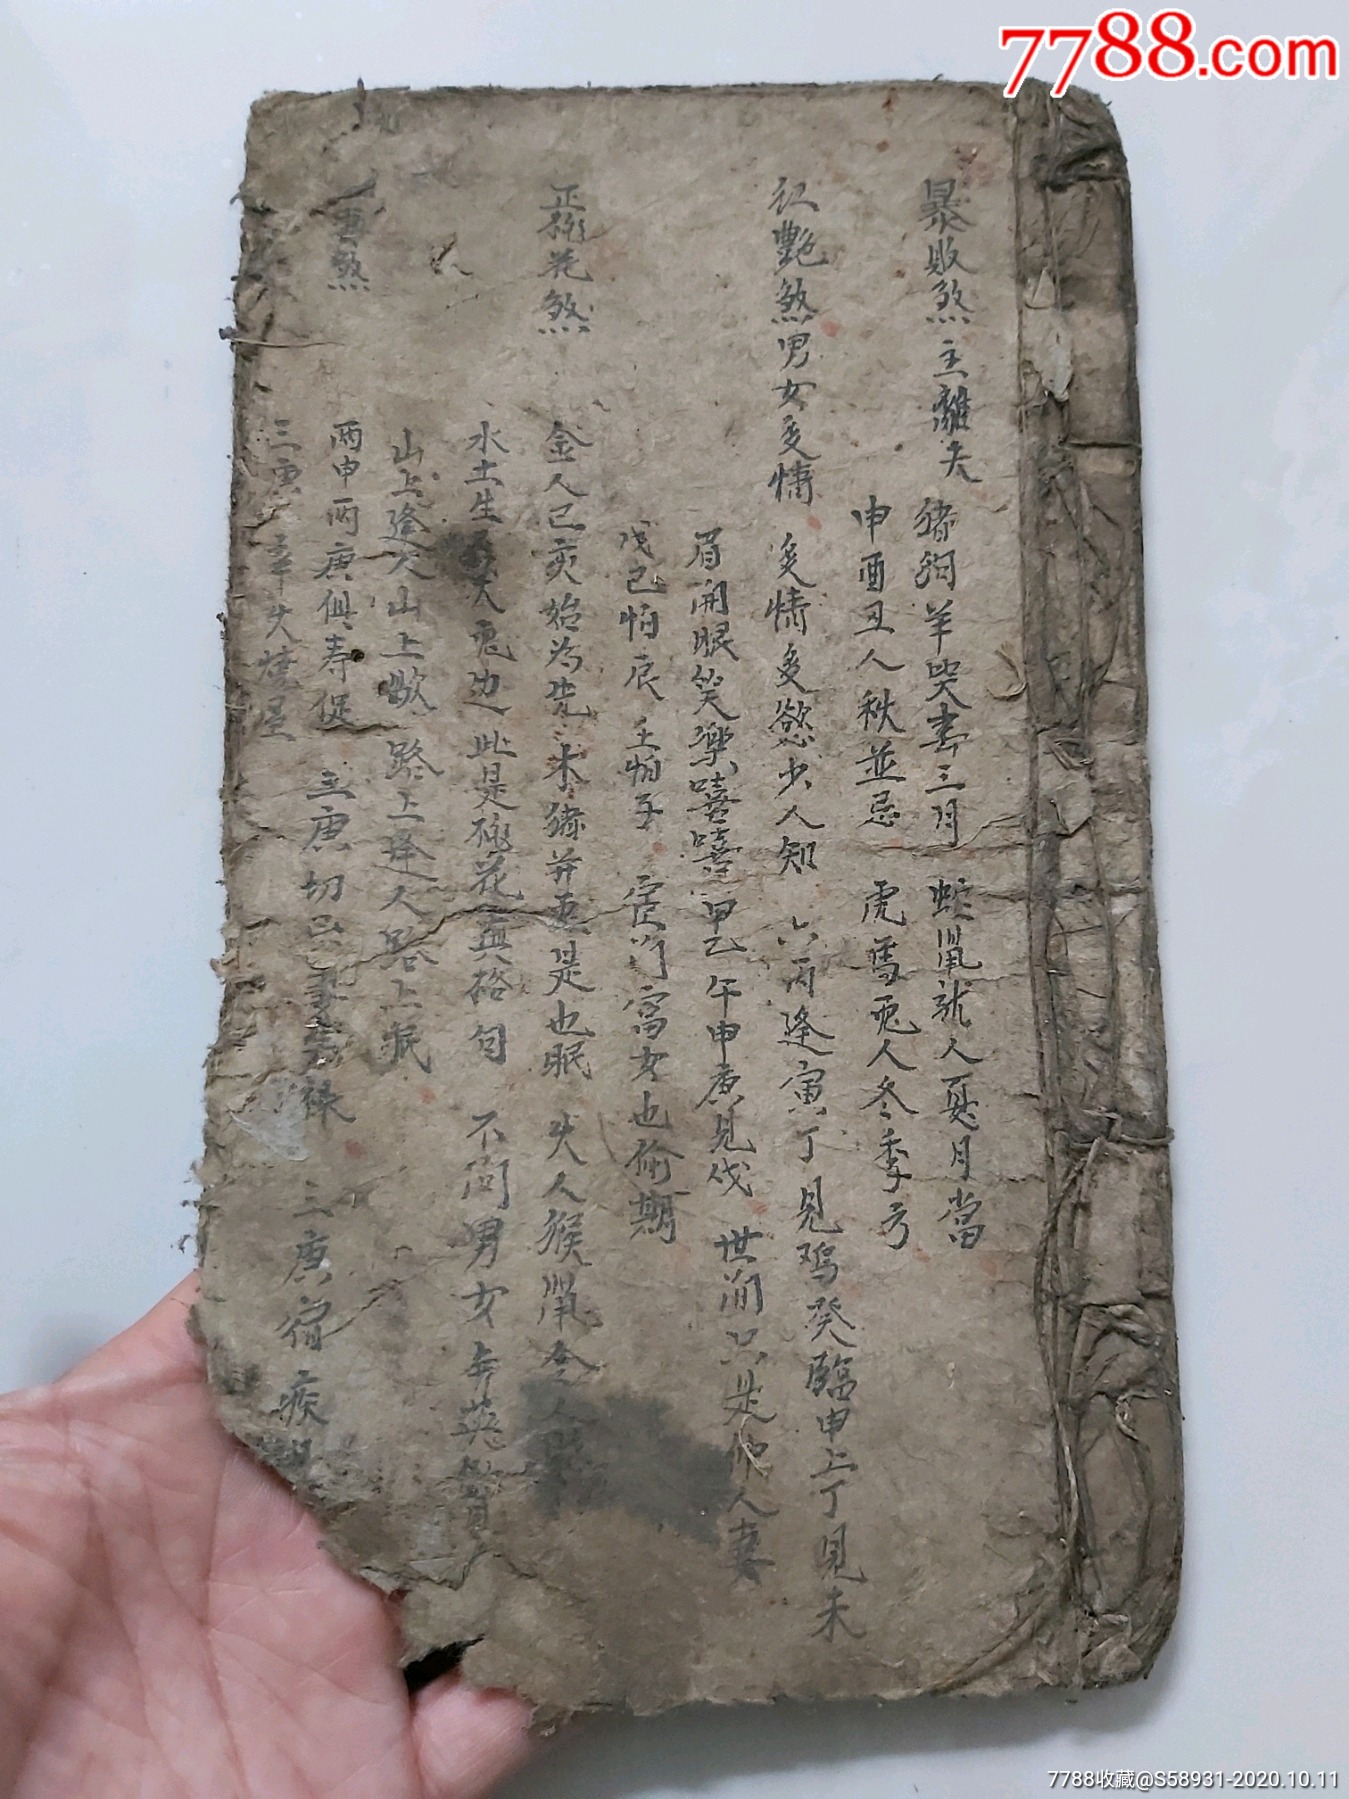 7788.com
暴敗煞 主離夫 猪狗羊哭春三月 蛇鼠就人夏月當
申酉丑人秋並忌 虎馬兎人冬季亏
紅艷煞男女多情 多情多慾少人知 六丙逢寅丁見鸡癸臨申上丁見未
眉開眼笑樂嘻嘻甲乙午申庚見戌 世间只是仲人妻
戊己怕辰壬怕子 宦门富女也偷期
正桃花煞 金人己亥始為先 木猪并 是也眠 火人猴鼠金人
水土生 兎边此是桃花真格句 不问男女年英
山上逢 山上歇 路上逢人路上眠
煞 丙申丙庚俱寿促 主庚切己 禄 三庚宿疾
三 辛失 星
7788收藏@S58931-2020.10.11